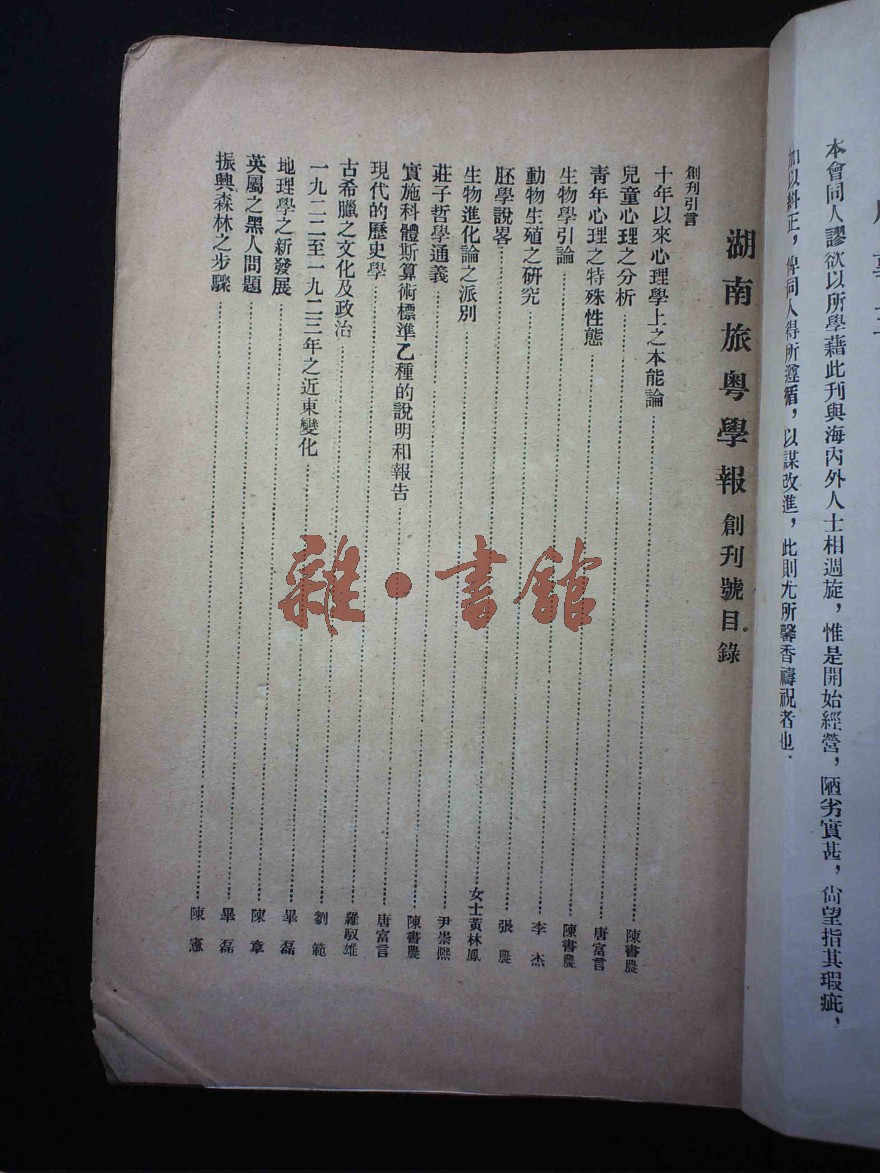 本會同人謬欲以所學藉此刊與海內外人士相週旋，惟是開始經營，陋劣實甚，尙望指其瑕疵，
加以糾正，俾同人得所遵循，以謀改進，此則尤所馨香禱祝者也．
湖南旅粤學報 創刊號目錄
創刊引言
十年以來心理學上之本能論 陳書農
兒童心理之分析 唐富言
靑年心理之特殊性態 陳書農
生物學引論 李杰
動物生殖之研究 張農
胚學說畧 女士黃林鳳
生物進化論之派別 尹崇熙
莊子哲學通義 陳書農
實施科體斯算術標準乙種的說明和報告 唐富言
現代的歷史學 羅馭雄
古希臘之文化及政治 劉範
一九二二至一九二三年之近東變化 畢磊
地理學之新發展 陳章
英屬之黑人問題 畢磊
振興森林之步驟 陳憲
雜·書館